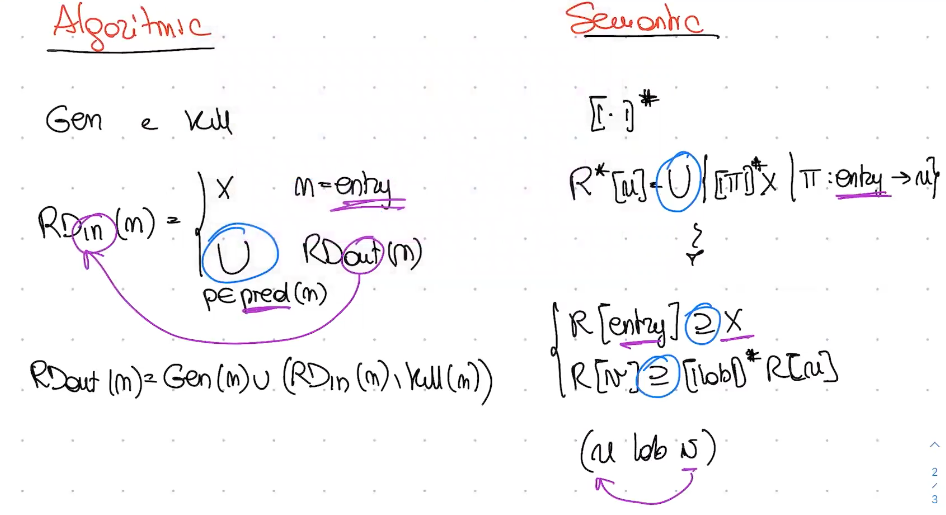 Algoritmic
Gen e kill
RDin(m) = { X m = entry
⋃ RDout(m)
p∈pred(m)
RDout(m) = Gen(m) ∪ (RDin(m) \ kill(m))
Semantic
[[·]]#
R*[u] = ⋃ { [[π]]# X | π : entry → u }
{ R[entry] ⊇ X
R[v] ⊇ [[lab]]# R[u]
(u lab v)
2
/
3